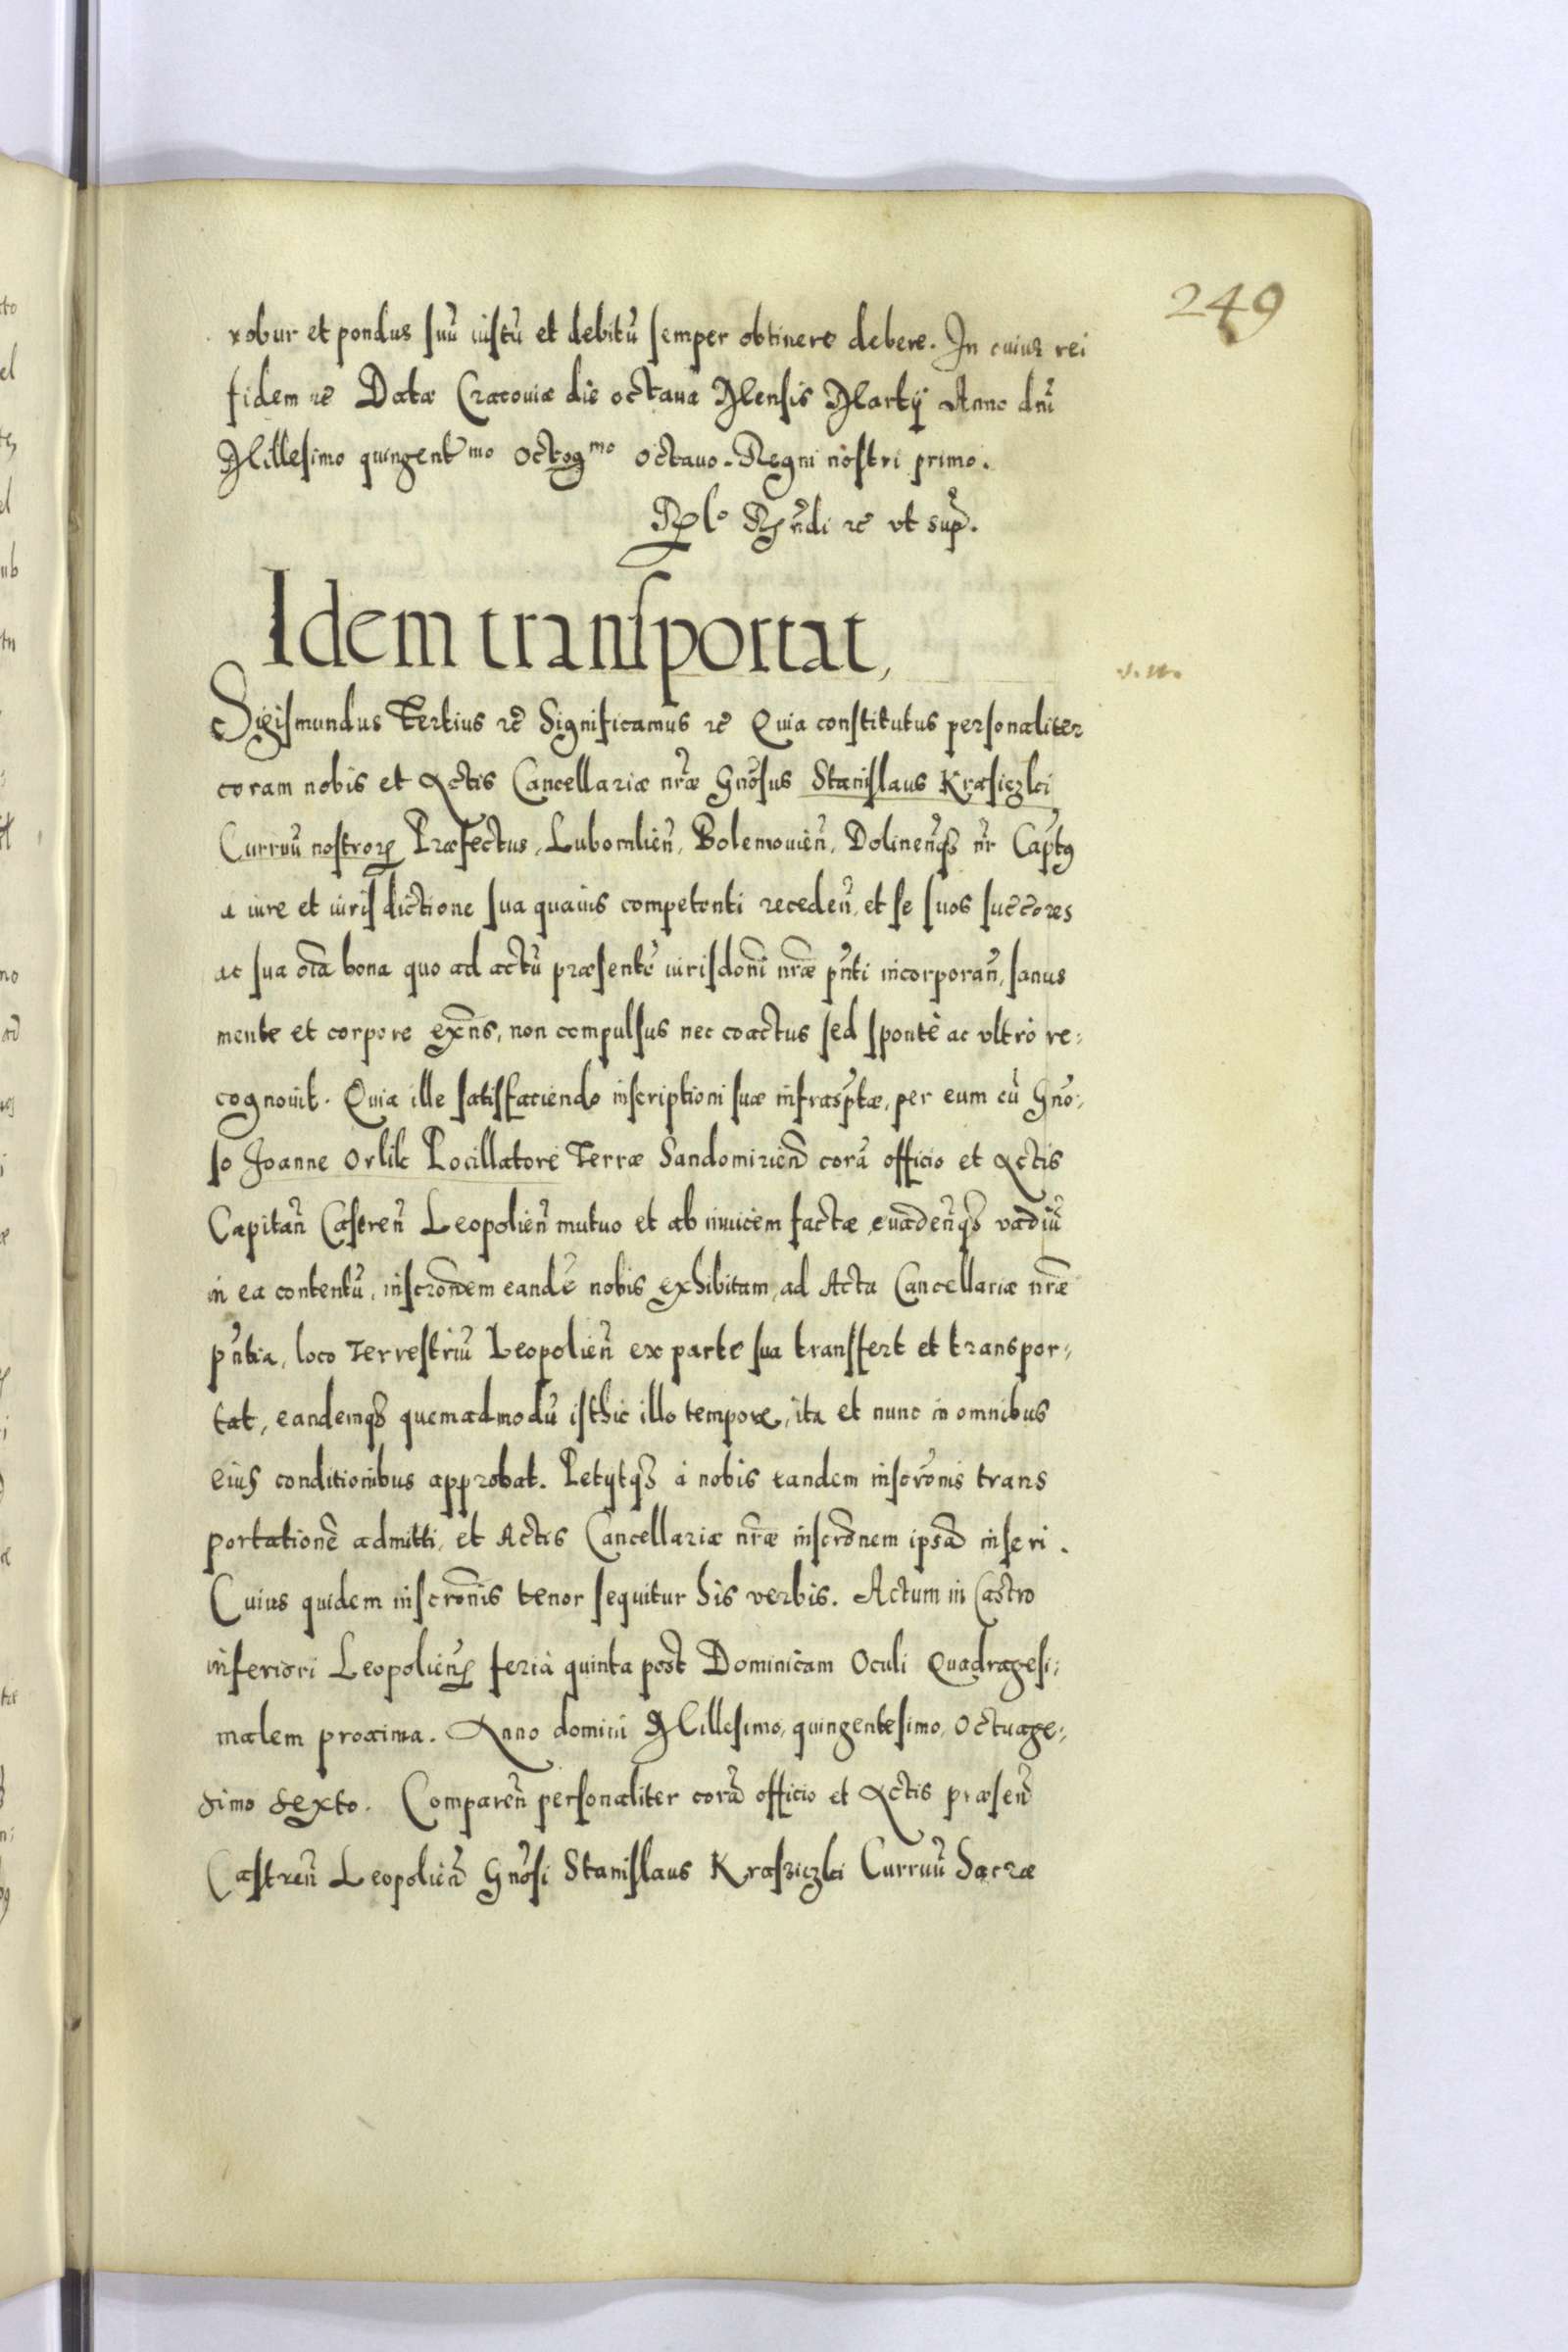 249
robur et pondus suũ iustũ et debitũ semper obtinere debere. In cuius rei
fidem ꝛc̃ Datæ Cracouiæ die octaua Mensis Martij Anno dnĩ
Millesimo quingentmo octogmo octauo. Regni nostri primo.
Rlo Rñdi ꝛc̃ vt sup̃.
Idem transportat,
Sigismundus Tertius ꝛc̃ Significamus ꝛc̃ Quia constitutus personaliter
coram nobis et Actis Cancellariæ nr̃æ Gñosus Stanislaus Krasiczki
Curruũ nostroꝝ Præfectus, Lubomlieñ, Bolemouieñ, Dolineñqꝫ nr̃ Capt̃ꝯ
a iure et iurisdictione sua quauis competenti recedeñ, et se suos succ̃ores
ac sua oĩa bona quo ad actũ præsentẽ iurisdoñi nr̃æ pñti incorporañ, sanus
mente et corpore exñs, non compulsus nec coactus sed sponte ac vltro re:
cognouit. Quia ille satisfaciendo inscriptioni suæ infrasp̃tæ, per eum cũ Gño:
so Joanne Orlik Pocillatore Terræ Sandomirieñ corã officio et Actis
Capitañ Castreñ Leopolieñ mutuo et ab inuicem factæ, euadeñqꝫ vadiũ
in ea contentũ, inscr̃onem eandẽ nobis exhibitam, ad Acta Cancellariæ nr̃æ
pñtia, loco Terrestriũ Leopolieñ ex parte sua transfert et transpor:
tat, eandemqꝫ quemadmodũ isthic illo tempore, ita et nunc in omnibus
eius conditionibus approbat. Petijtqꝫ à nobis eandem inscr̃onis trans
portationẽ admitti, et Actis Cancellariæ nr̃æ inscr̃onem ipsã inseri.
Cuius quidem inscr̃onis tenor sequitur his verbis. Actum in Castro
inferiori Leopolieñ feria quinta post Dominicam Oculi Quadragesi:
malem proxima. Anno domini Millesimo, quingentesimo, Octuage:
simo sexto. Compareñ personaliter corã officio et Actis præseñ
Castreñ Leopolieñ Gñosi Stanislaus Krasziczki Curruũ Sacræ